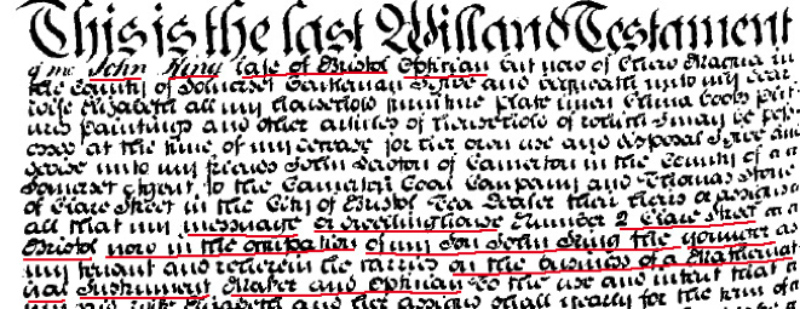 This is the last Will and Testament
of me John King late of Bristol Optician but now of Chew Magna in
the County of Somerset Gentleman I give and bequeath unto my dear
wife Elizabeth all my Household furniture plate linen China books prints
and paintings and other articles of Household of which I may be poss
essed at the time of my decease for her own use and disposal I give and
devise unto my friends John of Camerton in the County of
Somerset Agent to the Camerton Coal Company and Thomas Stone
of Clare Street in the City of Bristol Tea Dealer their heirs and assigns
all that my messuage or dwellinghouse Number 2 Clare Street
Bristol now in the occupation of my Son John King the younger as
my tenant and wherein he carries on the business of a Mathemat
ical Instrument Maker and Optician to the use and intent that
my said wife Elizabeth and her assigns shall for the term of